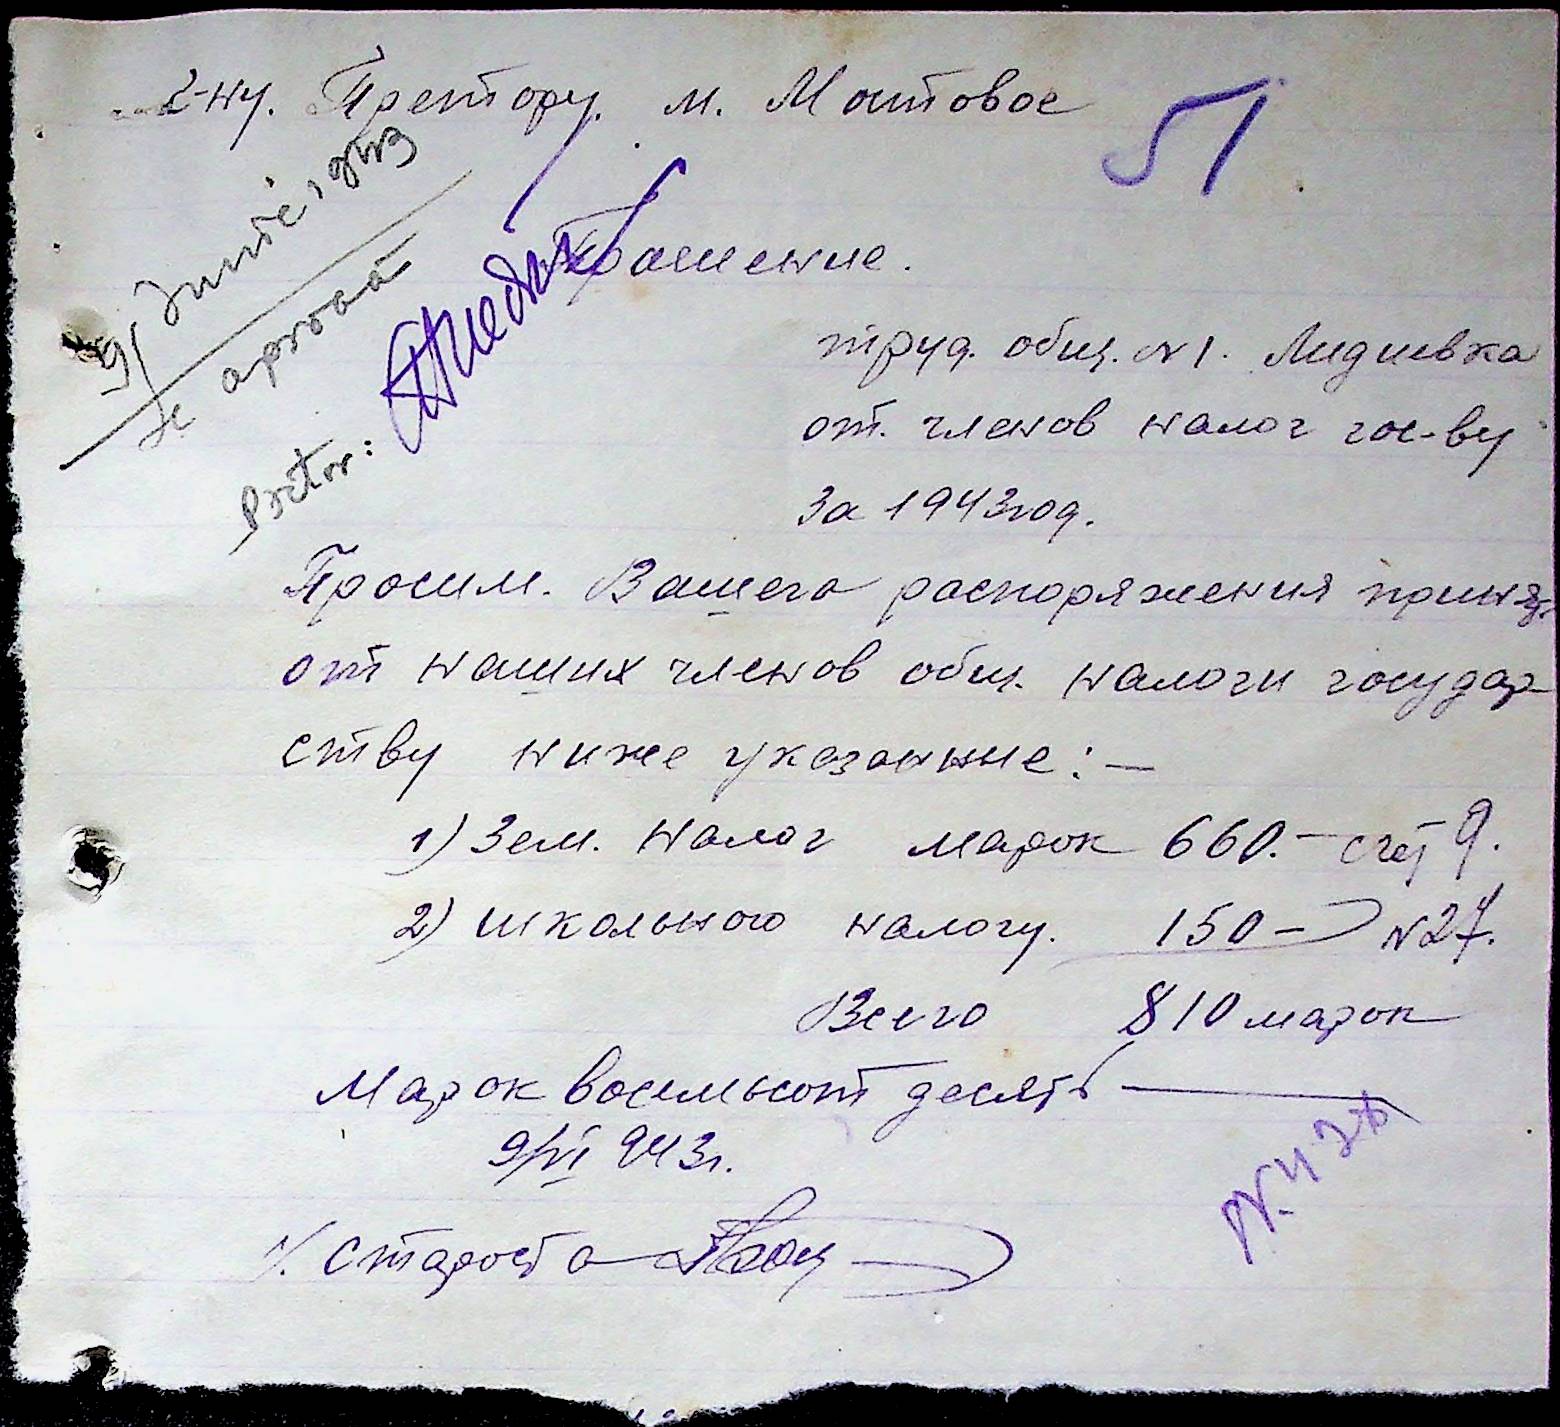 Г-ну. Претору. м. Мостовое
51
9/ Iunie, 943
Se aprobă
Pretor:
Прошение.
труд. общ. №1. Лидиевка
от. членов налог гос-ву
За 1943 год.
Просим. Вашего распоряжения принят
от наших членов общ. налоги государ
ству ниже указанные: —
1) Зем. налог марок 660.— счет 9.
2) школьного налогу. 150 — №27.
Всего 810 марок
Марок восемьсот десять —
9/VI 943г.
Староста